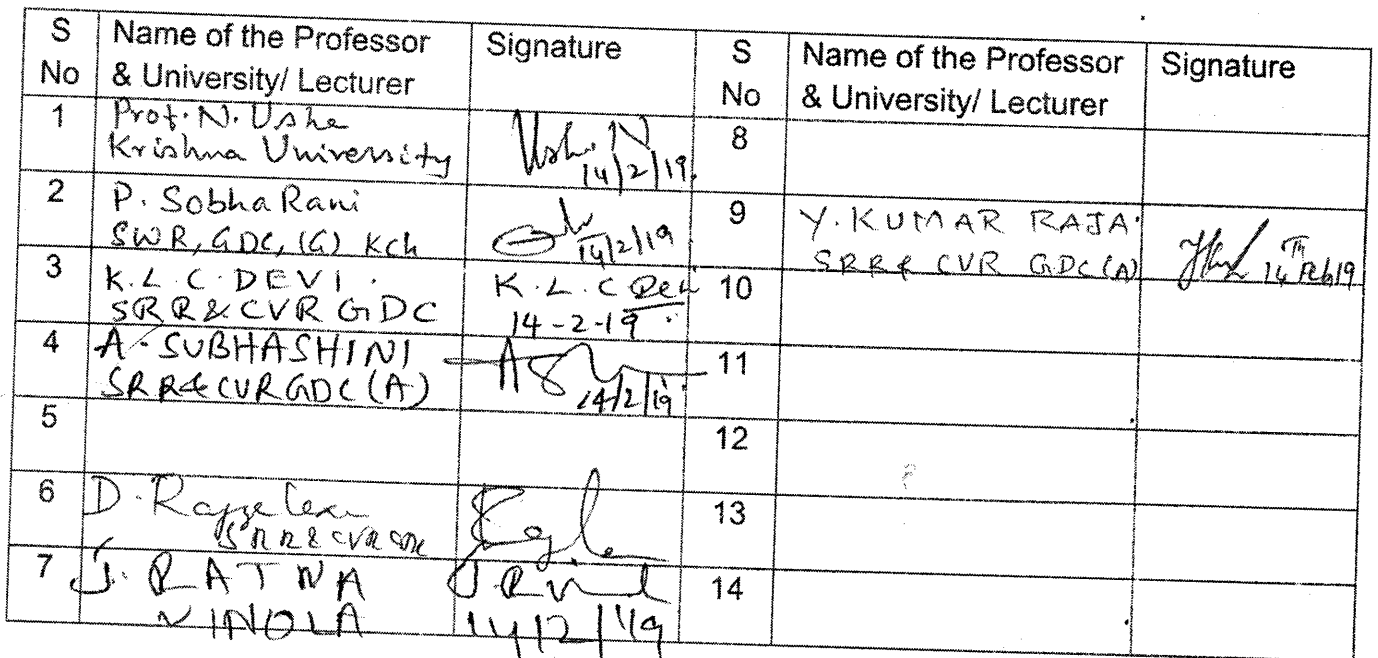 S No Name of the Professor & University/ Lecturer Signature S No Name of the Professor & University/ Lecturer Signature
1 Prof. N. Usha
Krishna University
Ush. N
14/2/19.
8
2 P. Sobha Rani
SWR, GDC, (G) Kch
14/2/19
9 Y. KUMAR RAJA.
SRR & CVR GDC (A)
14 Th Feb 19
3 K. L. C. DEVI.
SRR & CVR GDC
K. L. C Devi
14-2-19
10
4 A. SUBHASHINI
SRR & CVR GDC (A)
14/2/19
11
5
12
6 D.
SRR & CVR GDC
13
7 J. RATNA
VINOLA
14/2/19
14